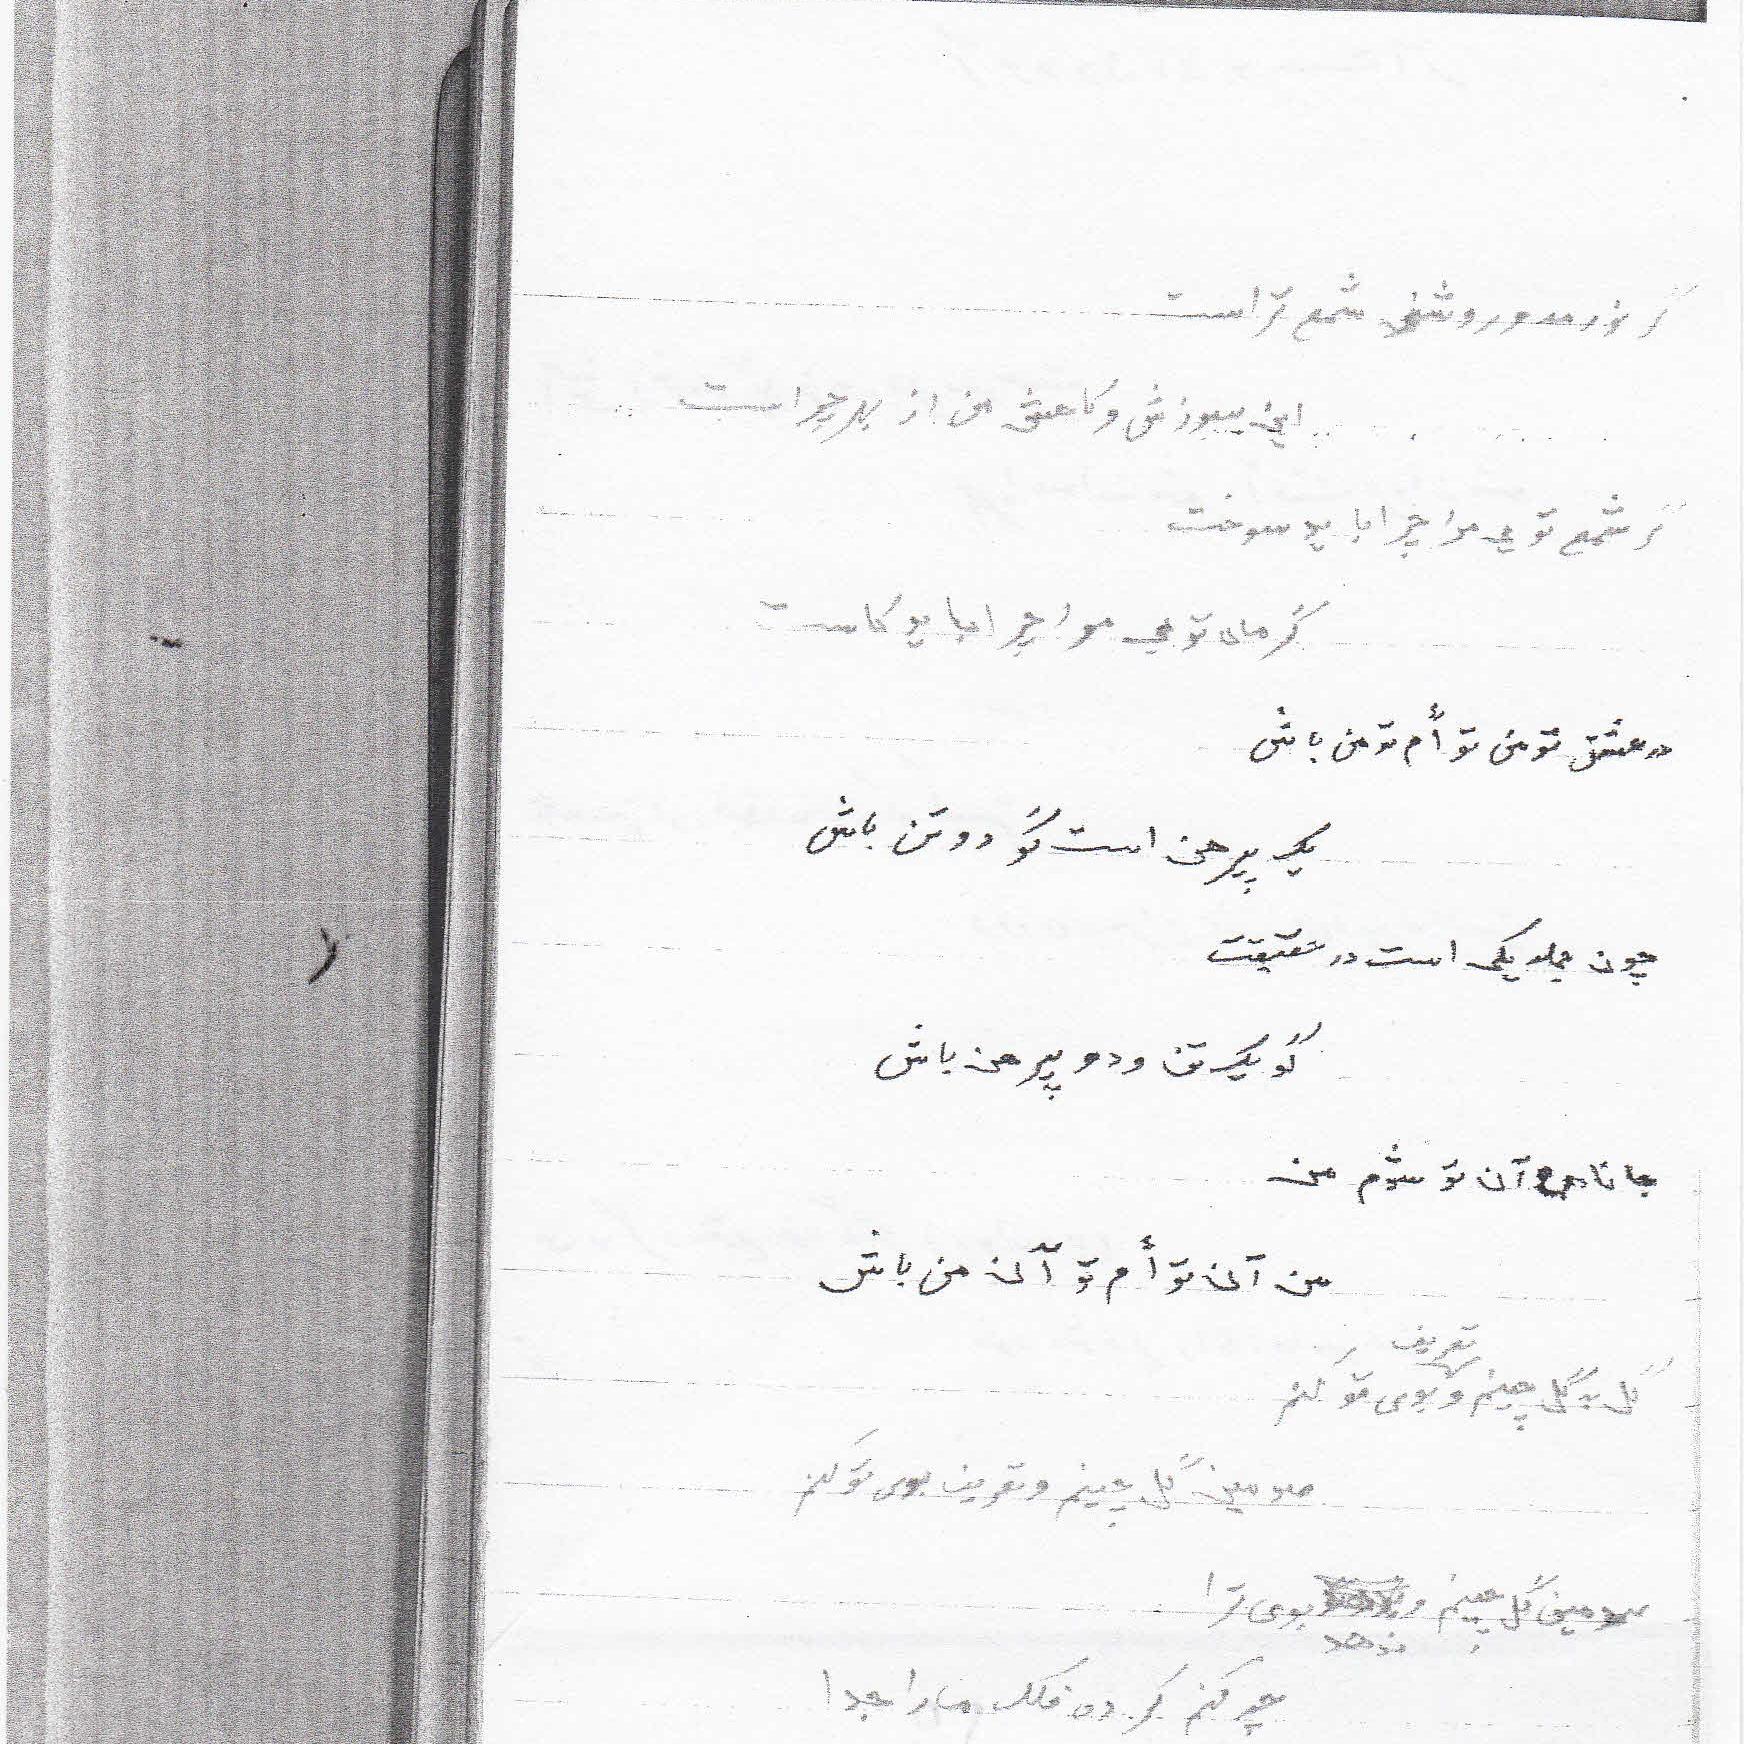 گر نور مه و روشنی شمع تراست
این سوزش و کاهش من از بهر چراست
گر شمع تویی مرا چرا باید سوخت
گر ماه تویی مرا چرا باید کاست
در عشق تو من توأم تو من باش
یک پیرهن است گو دو تن باش
چون جمله یکی است در حقیقت
گو یک تن و دو پیرهن باش
جانا آن تو شوم من
من آن توأم تو آن من باش
تعریف
گل گل چینم و بوی تو کنم
گل چینم و تعریف بوی تو کنم
گل چینم و بوی ترا
ندهد
چه کنم کرده فلک ما را جدا